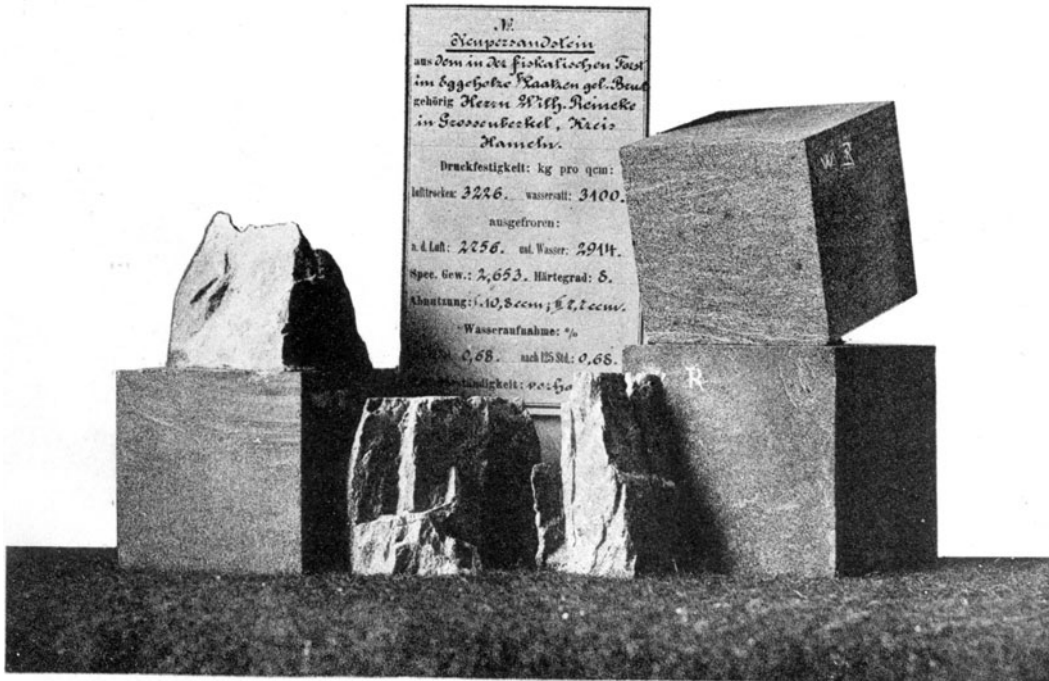 №
Keupersandstein
aus dem in der fiskalischen Forst
im Eggeholze gel. Bruch
gehörig Herrn Wilh. Reineke
in Grossenberkel, Kreis
Hameln.
Druckfestigkeit: kg pro qcm:
lufttrocken: 3226. wassersatt: 3100.
ausgefroren:
a. d. Luft: 2756. unt. Wasser: 2914.
Spec. Gew.: 2,653. Härtegrad: 8.
Abnutzung: 10,8 ccm; 2,2 ccm.
Wasseraufnahme: %
0,68. nach 125 Std.: 0,68.
W R
R